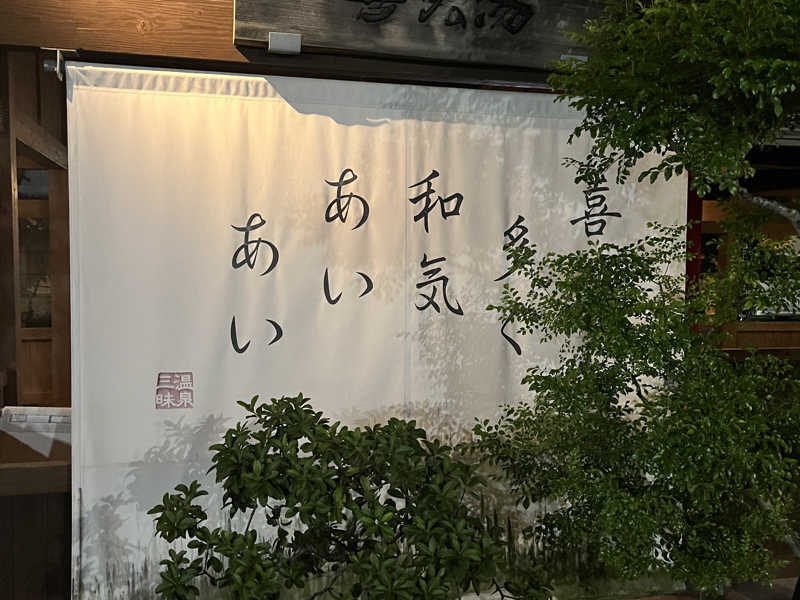 喜
多く
和気
あい
あい
温泉
三昧